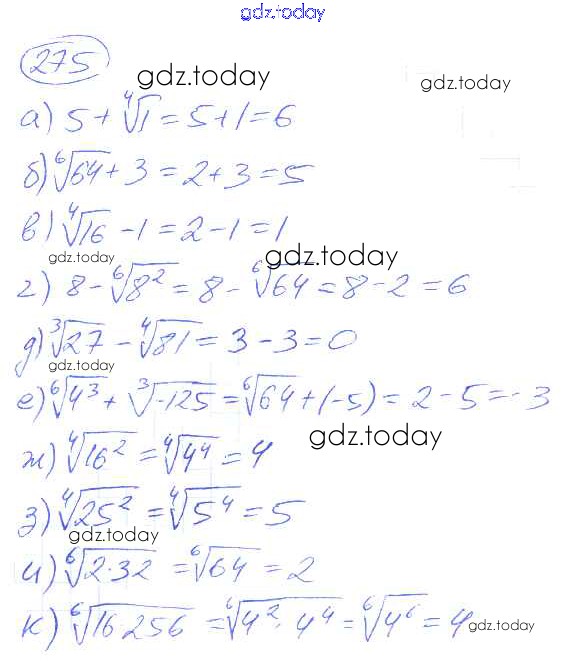 gdz.today
275
gdz.today
gdz.today
а) 5 + ⁴√1 = 5 + 1 = 6
б) ⁶√64 + 3 = 2 + 3 = 5
в) ⁴√16 - 1 = 2 - 1 = 1
gdz.today
gdz.today
г) 8 - ⁶√8² = 8 - ⁶√64 = 8 - 2 = 6
д) ³√27 - ⁴√81 = 3 - 3 = 0
gdz.today
е) ⁶√4³ + ³√-125 = ⁶√64 + (-5) = 2 - 5 = -3
gdz.today
ж) ⁴√16² = ⁴√4⁴ = 4
з) ⁴√25² = ⁴√5⁴ = 5
gdz.today
и) ⁶√2·32 = ⁶√64 = 2
к) ⁶√16·256 = ⁶√4²·4⁴ = ⁶√4⁶ = 4
gdz.today